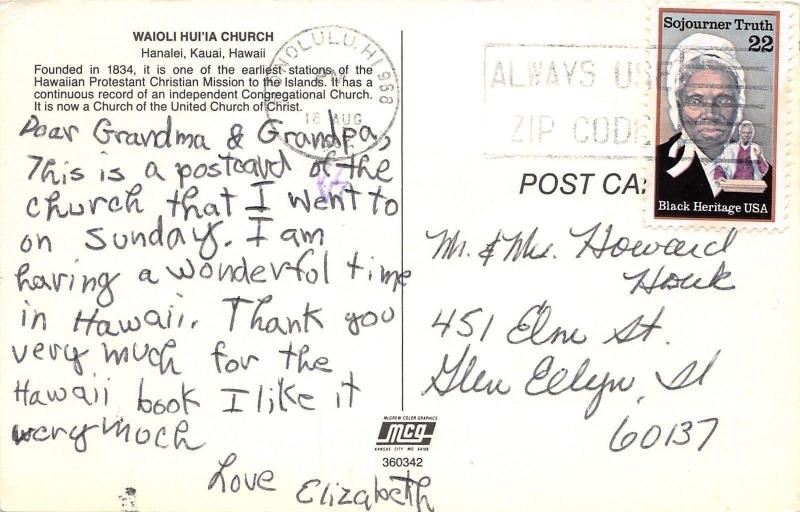 WAIOLI HUI'IA CHURCH
Hanalei, Kauai, Hawaii
Founded in 1834, it is one of the earliest stations of the
Hawaiian Protestant Christian Mission to the Islands. It has a
continuous record of an independent Congregational Church.
It is now a Church of the United Church of Christ.
Dear Grandma & Grandpa,
This is a postcard of the
church that I went to
on Sunday. I am
having a wonderful time
in Hawaii. Thank you
very much for the
Hawaii book I like it
very much
Love Elizabeth
HONOLULU, HI 968
PM
18 AUG
ALWAYS USE
ZIP CODE
Sojourner Truth
22
Black Heritage USA
POST CA
Mr. & Mrs. Howard
Houk
451 Elm St.
Glen Ellyn, Il
60137
McGREW COLOR GRAPHICS
mcg
KANSAS CITY, MO 64108
360342